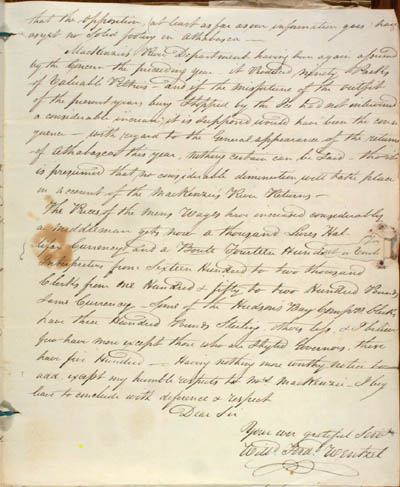 that the Opposition, at least as far as our information goes, have
as yet no solid footing in Athabasca —
MacKenzie's River Department having been again assumed
by the Concern the preceding year it rendered ninety Packs
of Valuable Peltries — and if the misfortune of the outfit
of the present years being stopped by the Ice had not intervened
a considerable increase it is supposed would have been the conse
quence — with regard to the General appearance of the returns
of Athabasca this year, nothing certain can be said — tho' it
is presumed that no considerable diminution will take place
in account of the MacKenzie's River Returns —
The Prices of the mens Wages have increased considerably
a middleman gets now a thousand Livres Hal
ifax Currency, and a Boute fourteen Hundred
Interpreters from Sixteen Hundred to two thousand
Clerks from one Hundred & fifty to two Hundred Pounds
same Currency — Some of the Hudson's Bay Comp^s Clerks
have three Hundred Pounds Sterling, others less, & I believe
few have more except those who are Styled Governors, these
have five Hundred — Having nothing more worthy notice to
add, except my humble respects to Mrs MacKenzie — I beg
leave to conclude with deference & respect
Dear Sir
Your ever grateful Serv^t
Will^m Ferd^d Wentzel